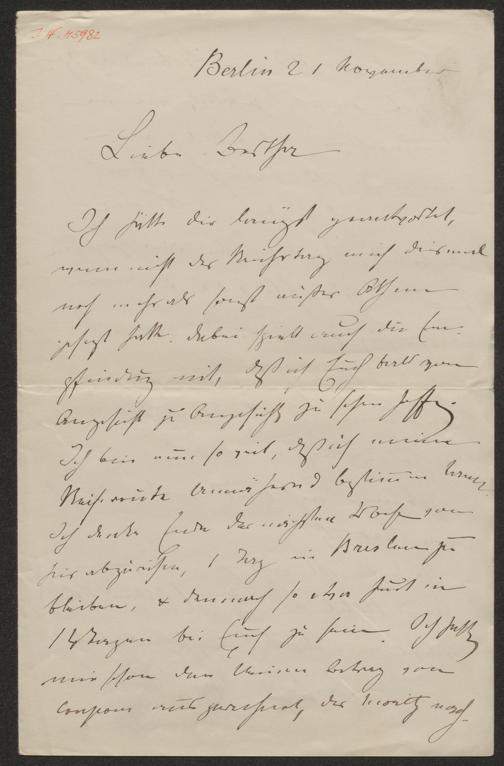 I. N. 115982
Berlin 21 November
Liebe Bertha
Ich hätte dir längst geantwortet,
wenn nicht der Reichstag mich diesmal
noch mehr als sonst außer Athem
gesetzt hätte. Dabei spielt auch die Em-
pfindung mit, daß ich Euch bald von
Angesicht zu Angesicht zu sehen hoffe.
Ich bin nun so weit, daß ich meine
Reiseroute annähernd bestimmen kann.
Ich denke Ende der nächsten Woche von
hier abzureisen, 1 Tag in Breslau zu
bleiben, & demnach so etwa heut in
14 Tagen bei Euch zu sein. Ich
mir schon den Betrag von
Coupons auszurechnet, der Moritz nach-